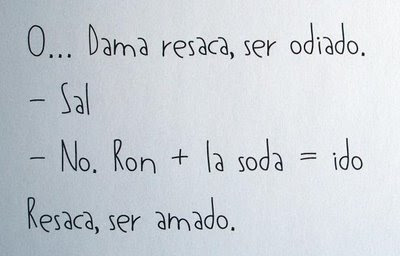 O... Dama resaca, ser odiado.
- Sal
- No. Ron + la soda = ido
Resaca, ser amado.